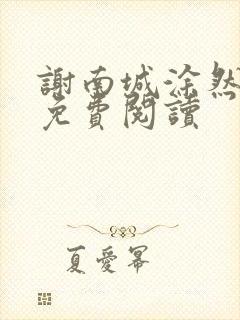 謝南城涂然
免費閱讀
夏愛冪